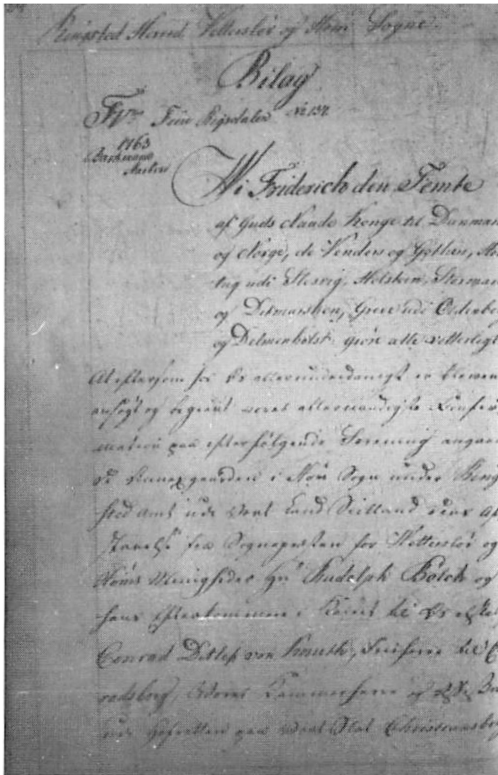 Ringsted Herred. Vetterslöv og Höm Sogne.
Bilag
Fire Rigsdaler No 137.
1763
Wi Friderich den Femte
af Guds Naade Konge til Danmar
og Norge, de Venders og Gothers, Her
tug udi Slesvig, Holsteen, Storman
og Ditmarshen, Greve udi Oldenbo
og Delmenhorst, giøre alle vitterligt
At eftersom for Os allerunderdanigst er bleven
ansøgt og begiert vores allernaadigste Confir
mation paa efterfølgende Forening angaae
de Annexgaarden i Höm Sogn under Ring
sted Amt udi vort Land Seilland dens Af
staaelse fra Sognepresten for Wetterslöv og
Höms Menigheder Hr Rudolph Bölck og
hans Efterkommere i Kaldet til Os elske
Conrad Ditlef von Knuth, Friherre til C
radsborg, Vores Kammerherre og
udi Hofretten paa vort Slot Christiansbor